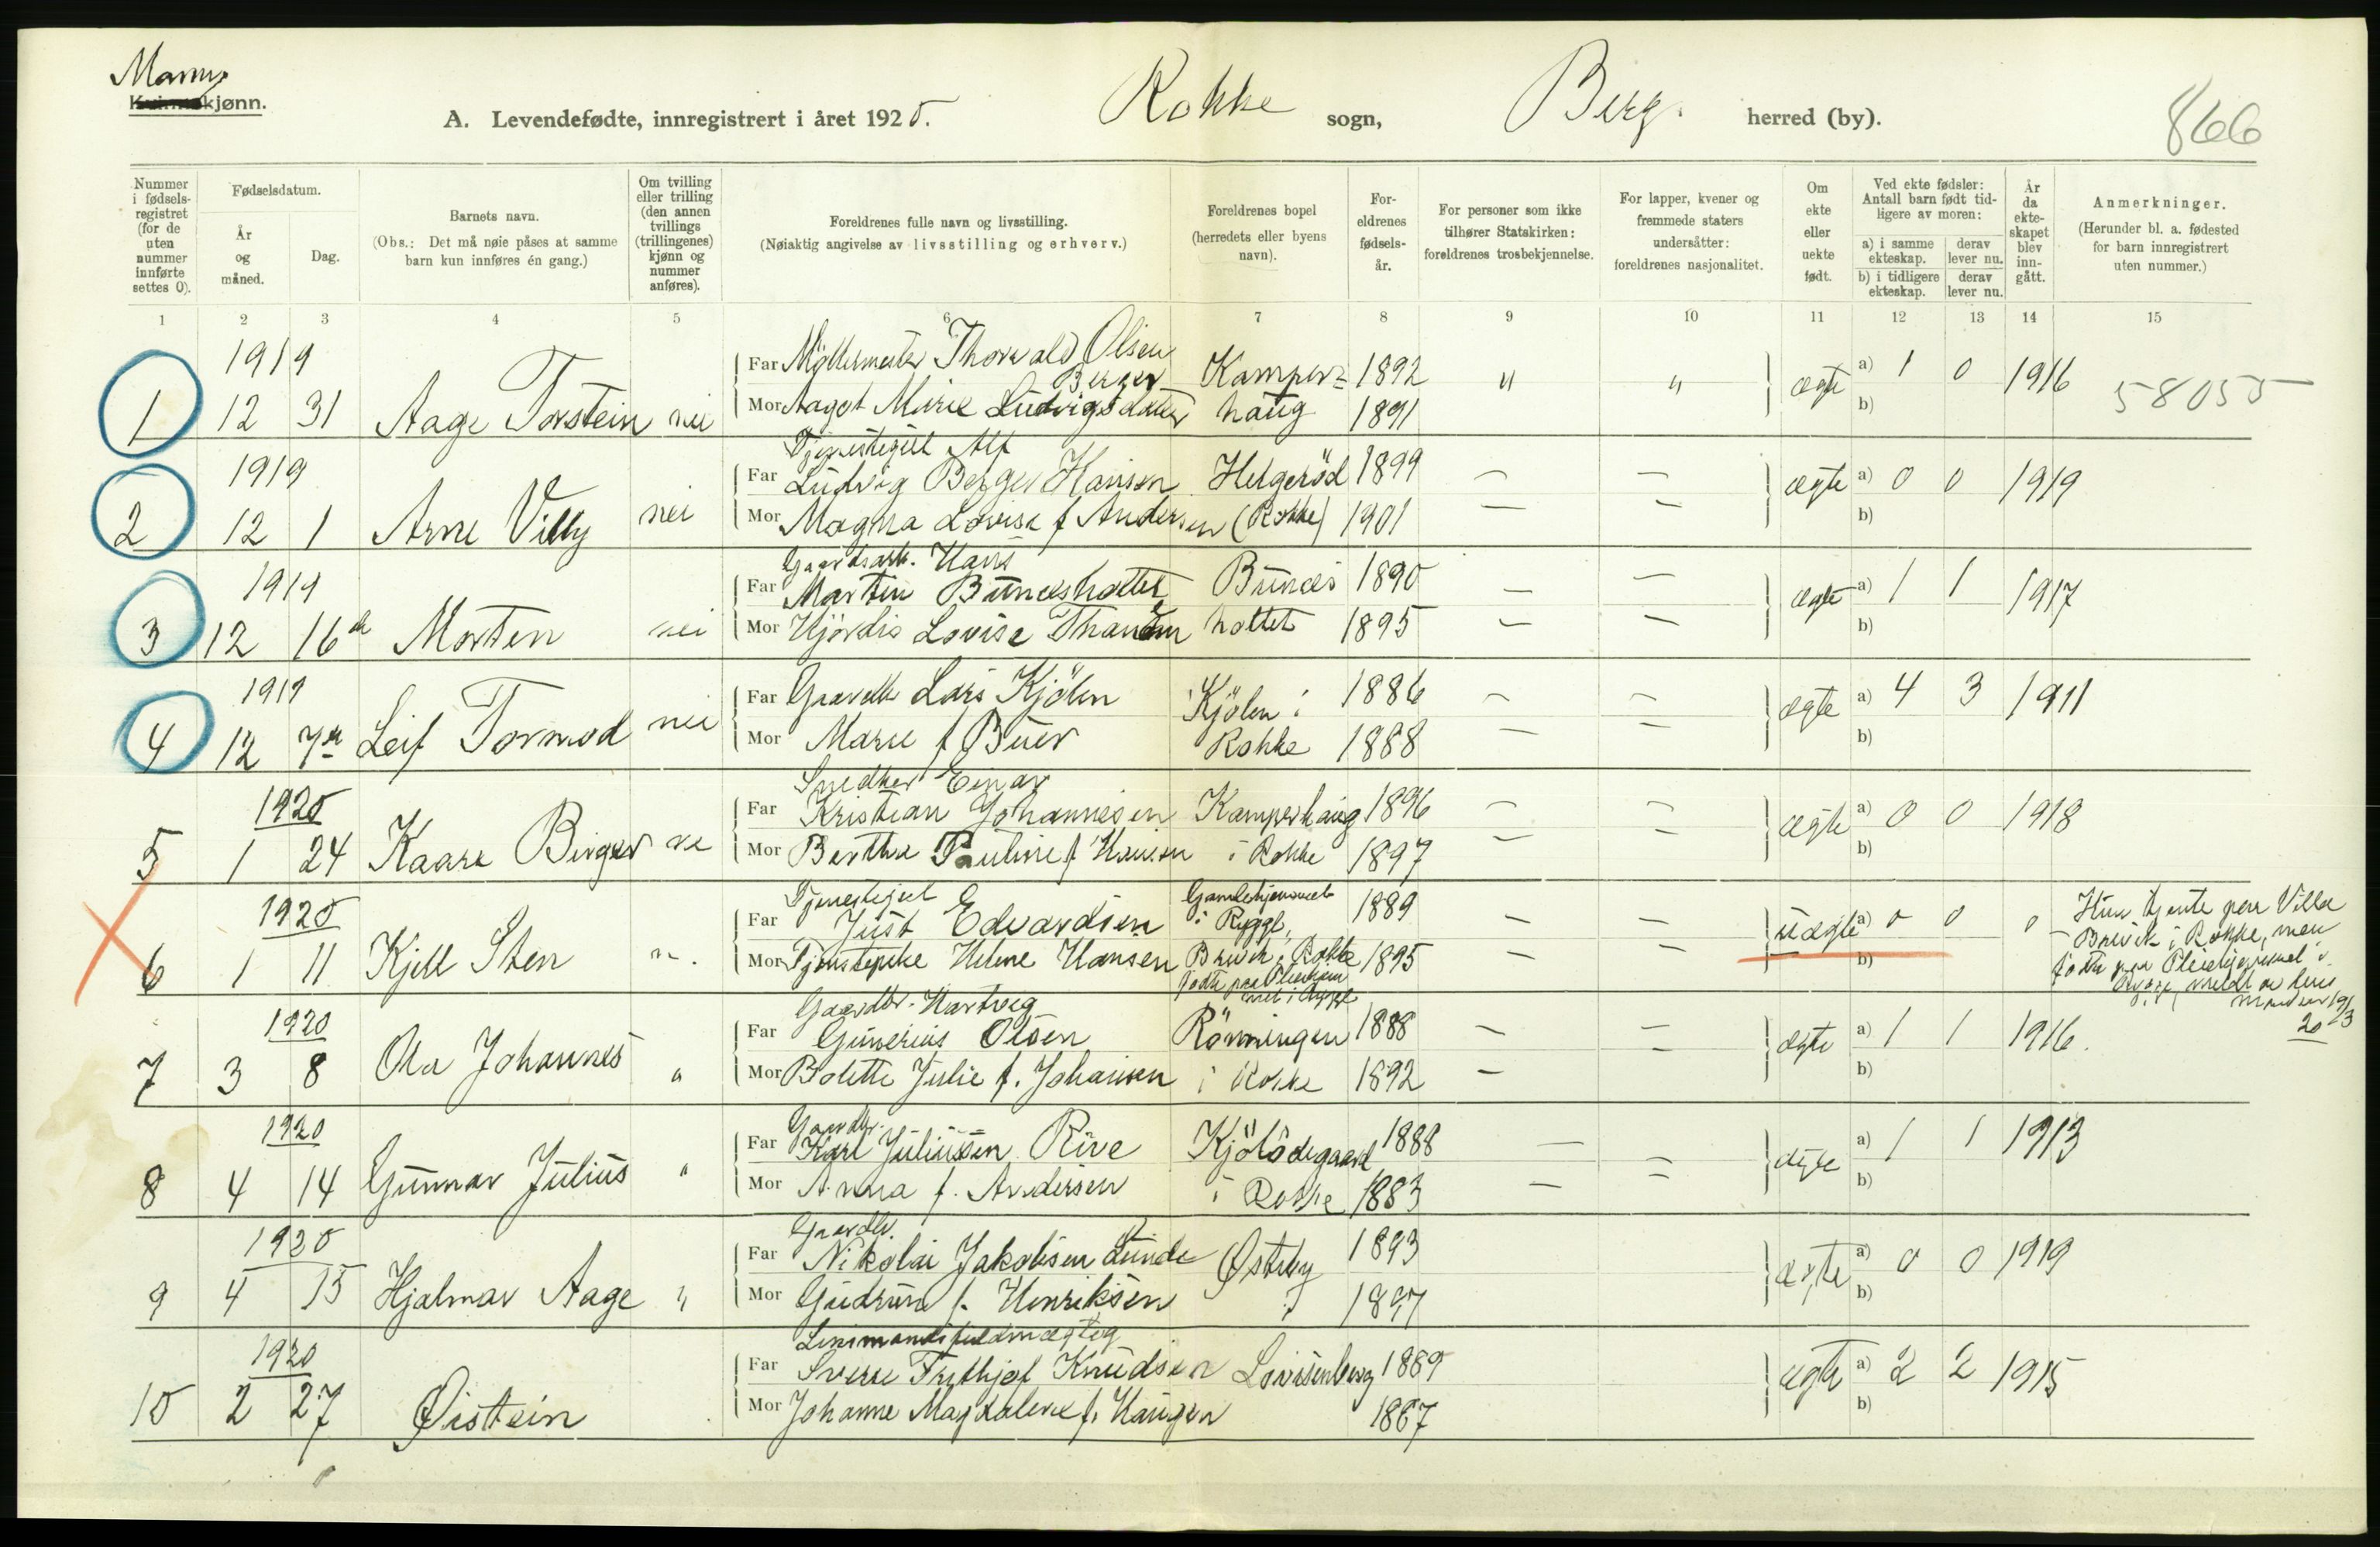 Manns
Kvinnekjønn.
A. Levendefødte, innregistrert i året 1920.
Rokke sogn, Berg herred (by).
866
Nummer i fødselsregistret (for de uten nummer innførte settes 0).
Fødselsdatum.
År og måned.
Dag.
Barnets navn.
(Obs.: Det må nøie påses at samme barn kun innføres én gang.)
Om tvilling eller trilling (den annen tvillings (trillingenes) kjønn og nummer anføres).
Foreldrenes fulle navn og livsstilling.
(Nøiaktig angivelse av livsstilling og erhverv.)
Foreldrenes bopel (herredets eller byens navn).
Foreldrenes fødselsår.
For personer som ikke tilhører Statskirken: foreldrenes trosbekjennelse.
For lapper, kvener og fremmede staters undersåtter: foreldrenes nasjonalitet.
Om ekte eller uekte født.
Ved ekte fødsler: Antall barn født tidligere av moren:
a) i samme ekteskap.
derav lever nu.
b) i tidligere ekteskap.
derav lever nu.
År da ekteskapet blev inngått.
Anmerkninger.
(Herunder bl. a. fødested for barn innregistrert uten nummer.)
1 2 3 4 5 6 7 8 9 10 11 12 13 14 15
1919
1 12 31 Aage Torstein nei
Far Møllermester Thorvald Olsen Berger Kamper= 1892 " " ægte a) 1 0 1916 58055
Mor Aagot Marie Ludvigsdatter haug 1891 b)
1919
2 12 1 Arne Villy nei
Tjenestegut Alf
Far Ludvig Berger Hansen Helgerød 1899 — — ægte a) 0 0 1919
Mor Magna Lovise f Andersen (Rokke) 1901 — — b)
1919
3 12 16de Morten nei
Gaardsarb. Hans
Far Martin Bundesholtet Bundes 1890 — — ægte a) 1 1 1917
Mor Hjørdis Lovise holtet 1895 — — b)
1919
4 12 7de Leif Tormod nei
Far Gaardbr Lars Kjölen Kjölen i 1886 — — ægte a) 4 3 1911
Mor Marie f Buer Rokke 1888 — — b)
1920
5 1 24 Kaare Birger ne
Snedker Einar
Far Kristian Johannesen Kamperhaug 1896 — — ægte a) 0 0 1918
Mor Berthe Pauline f Hansen i Rokke 1897 — — b)
1920
6 1 11 Kjell Sten n.
Tjenestegut
Far Just Edvardsen Gamlehjemmet i Rygge, 1889 — — uægte a) 0 0 0
Mor Tjenstepike Helene Hansen Brevik i Rokke 1895 — — b)
født paa Pleiehjemmet i Rygge
Hun tjente paa Villa
Brevik i Rokke, men
født paa Pleiehjemmet i
Rygge, meldt av
1920
7 3 8 Ola Johannes "
Gaardbr. Hartvig
Far Gunerius Olsen Rönningen 1888 — — ægte a) 1 1 1916.
Mor Bolette Julie f. Johansen i Rokke 1892 — — b)
1920
8 4 14 Gunnar Julius "
Gaardbr.
Far Karl Juliussen Rive Kjölödegaard 1888 — — ægte a) 1 1 1913
Mor Anna f. Andersen i Rokke 1883 — — b)
1920
9 4 15 Hjalmar Aage "
Gaardbr.
Far Nikolai Jakobsen Lunde Østby 1893 ægte a) 0 0 1919
Mor Gudrun f. Henriksen 1897 b)
1920
10 2 27 Øistein
Lensmandsfuldmægtig
Far Sverre Frithjof Knudsen Lovisenberg 1889 ægte a) 2 2 1915
Mor Johanne Magdalene f. Haugen 1887 b)